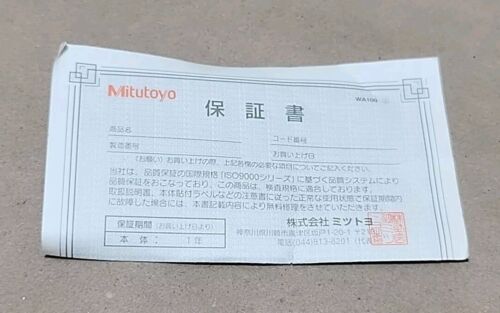 Mitutoyo
WA100
保証書
商品名
コード番号
製造番号
お買い上げ日
(お願い)お買い上げの際、上記各欄の必要な項目についてご記入ください。
当社は、品質保証の国際規格「ISO9000シリーズ」に基づく品質システムにより
品質保証をおこなっており、この商品は、検査規格に適合しております。
取扱説明書、本体貼付ラベルなどの注意書に従った正常な使用状態で保証期間内
に故障した場合には、本書記載内容により無料修理をさせていただきます。
保証期間 (お買い上げ日より)
本体: 1年
株式会社 ミツトヨ
神奈川県川崎市高津区坂戸1-20-1 〒21
電話(044)813-8201 (代表